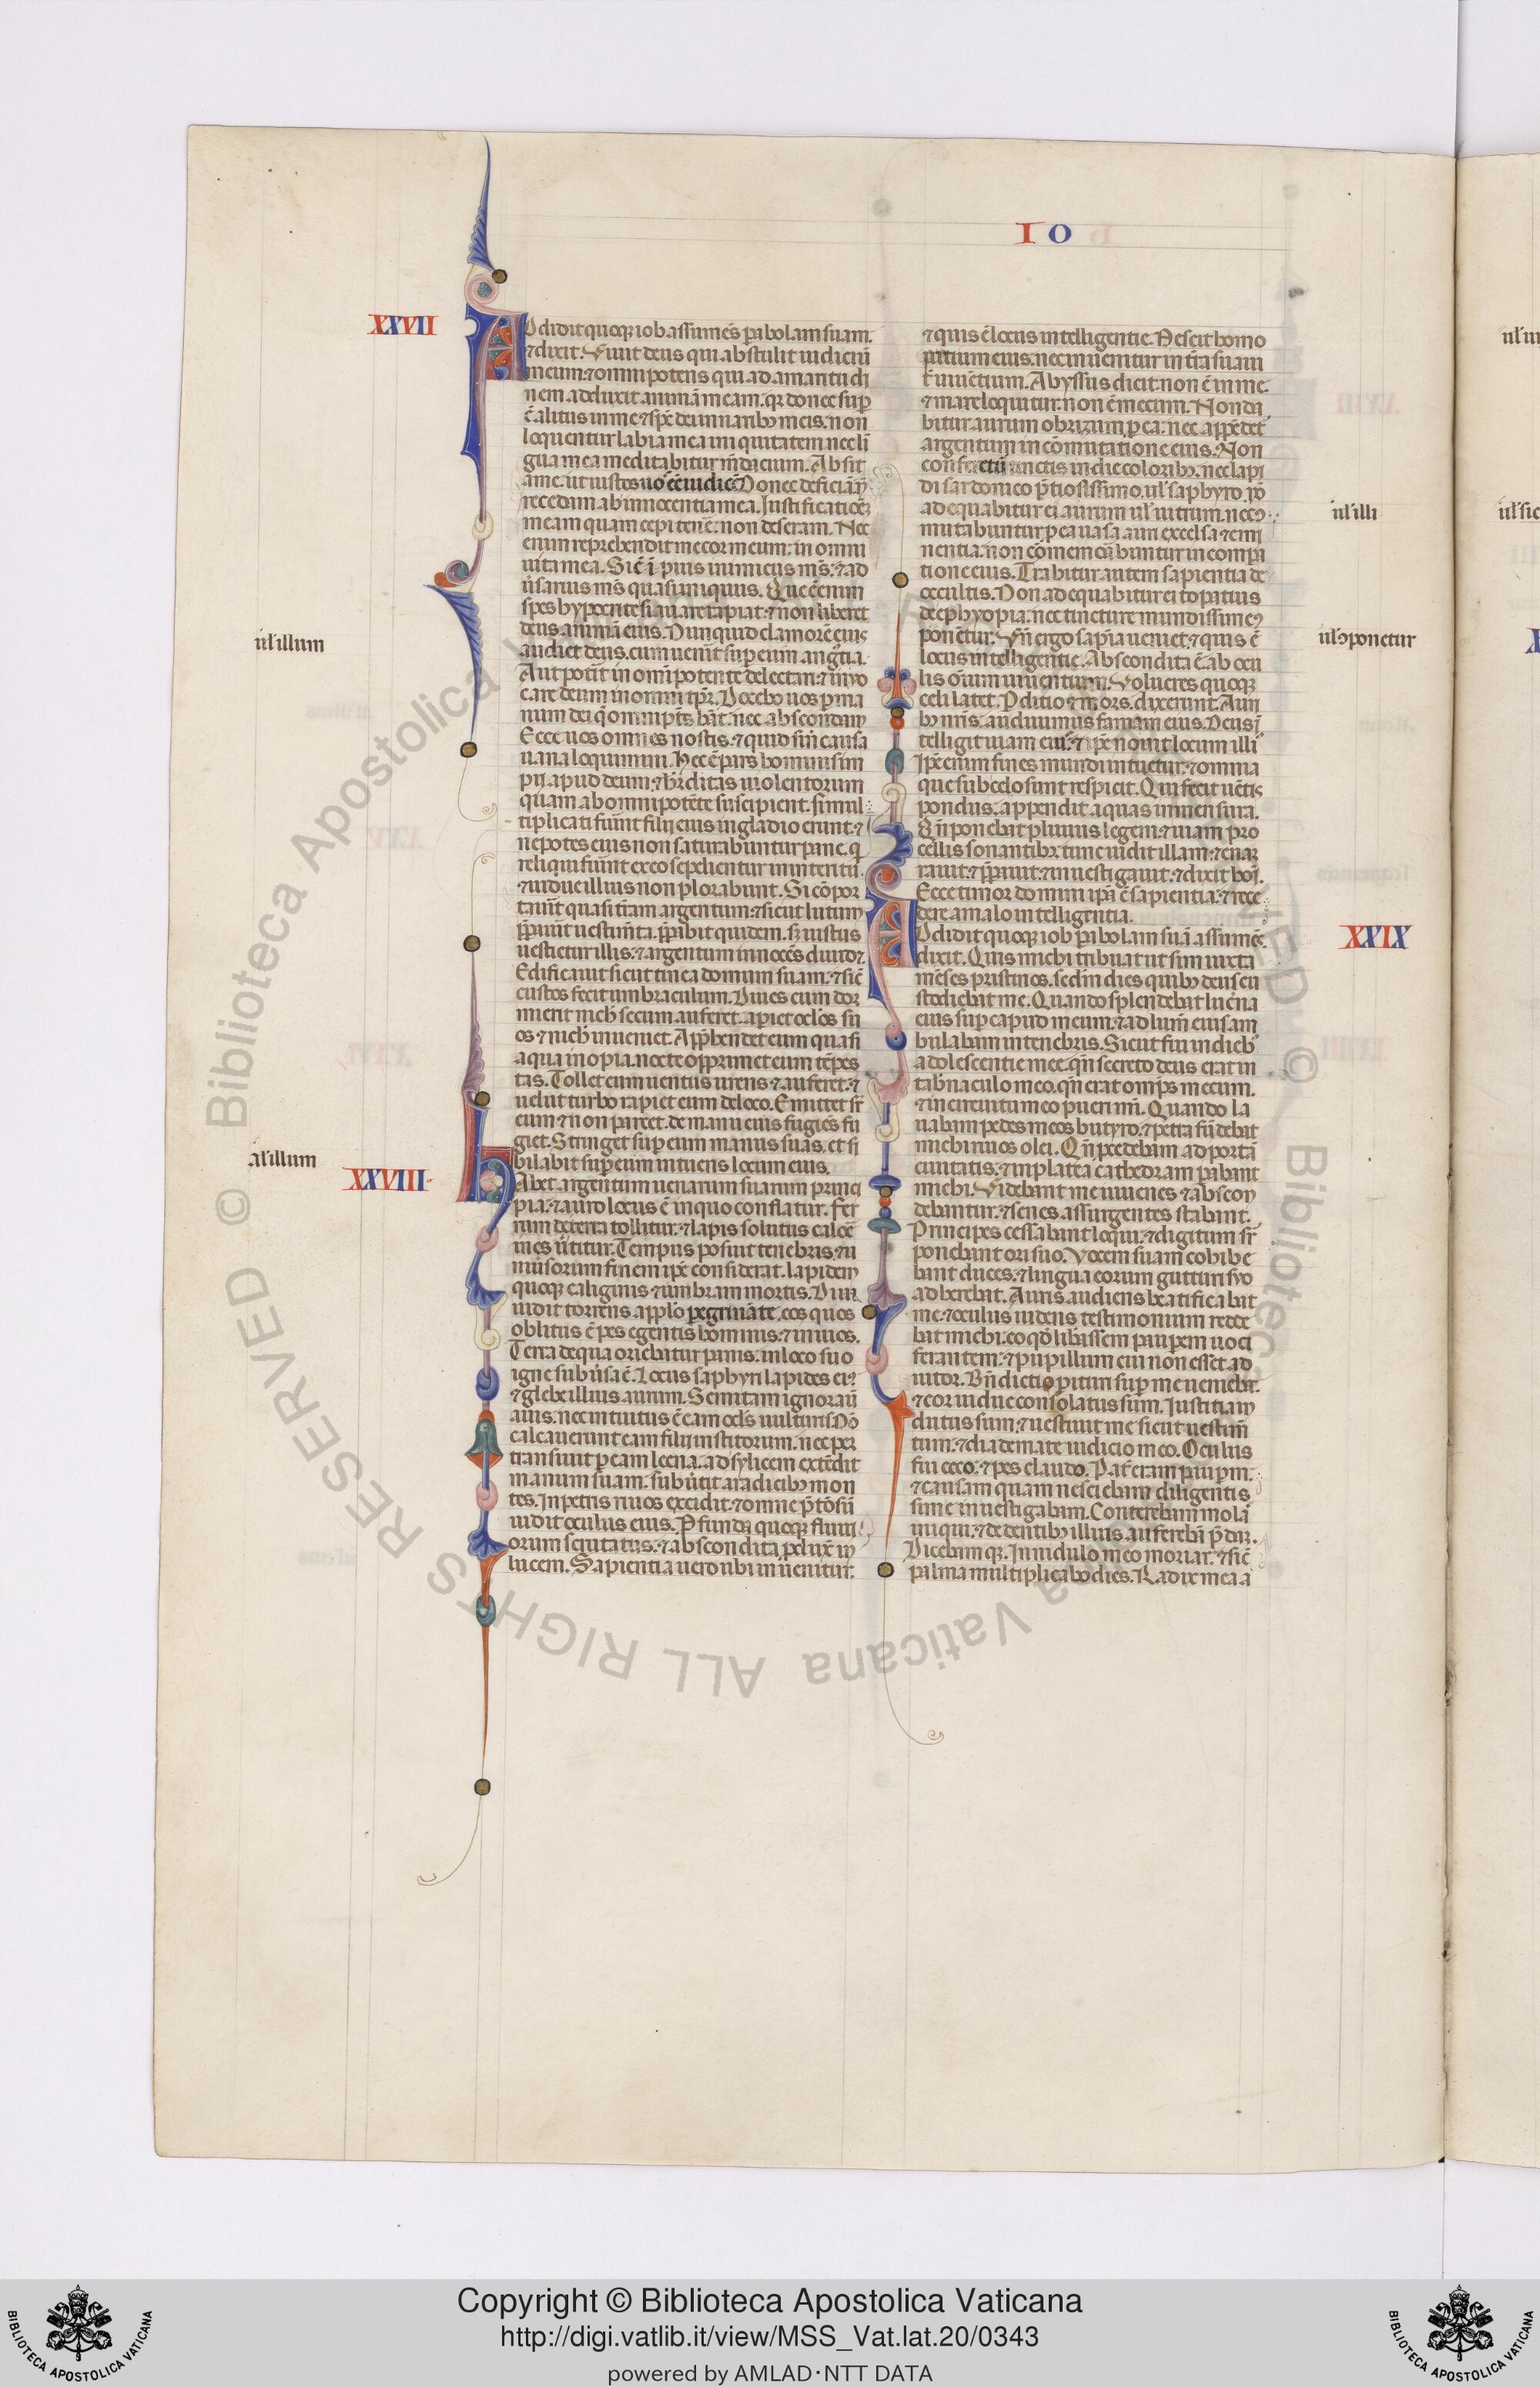 IO
XXVII
Adidit quoq; iob assumēs pabolam suam.
⁊ dixit. Viuit deus qui abstulit iudiciū
meum: ⁊ omnipotens qui ad amaritudi
nem adduxit animā meam. q donec sup
ē alitus in me ⁊ spc dei in narib; meis. non
loquentur labia mea iniquitatem nec lī
gua mea meditabitur mdacium. Absit
a me. ut iustos uos eē iudicē. Donec deficiā n̄
recedam ab innocentia mea. Iustificationē
meam quam cepi tenē: non deseram. Nec
enim reprehendit me cor meum: in omni
uita mea. Sic ī pius inimicus ms: ⁊ ad
ūsarius ms quasi iniquus. Que ē enim
spes hypocrite si auare rapiat: ⁊ non liberet
deus animā eius. Nunquid clamorē eius
audiet deus. cum uenīt sup eum angtia.
Aut potīt in omīpotente delectari: ⁊ inuo
care deum in omni tpr. Docebo uos p ma
num dei q omnipts hāt. nec abscondam
Ecce uos omnes nostis. ⁊ quid sin causa
uana loquimini. Hec ē pars hominis im
pii apud deum: ⁊ hrditas uiolentorum
quam ab omnipotēte suscipient. si mul
tiplicati fuint filii eius in gladio erunt: ⁊
nepotes eius non saturabuntur pane. q
reliqui fuint ex eo sepelientur in interitū.
⁊ uidue illius non plorabunt. Si cōpor
tauīt quasi tram argentum: ⁊ sicut lutum
ppauīt uestimta. ppabit quidem. s; iustus
uestietur illis: ⁊ argentum innocēs diuidet
Edificauit sicut tinea domum suam: ⁊ sic
custos fecit umbraculum. Diues cum dor
mierit nich secum auferet. apiet oclos su
os ⁊ nich inueniet. Apphendet eum quasi
aqua inopia. nocte opprimet eum tēpes
tas. Tollet eum uentus urens: ⁊ auferet: ⁊
uelut turbo rapiet eum de loco. Emittet sr
eum ⁊ non parcet. de manu eius fugiēs fu
giet. Stringet sup eum manus suas. et si
bilabit sup eum intuens locum eius.
ul illum
al illum
XXVIII
Habet argentum uenarum suarum princi
pia: ⁊ auro locus ē in quo conflatur. fer
rum de terra tollitur. ⁊ lapis solutus calore
in es ūtitur. Tempus posuit tenebris. ⁊ u
niūsorum finem ipe considerat. lapidem
quoq; caliginis ⁊ umbram mortis. Diui
uidit torrens a pplo peregrinante. eos quos
oblitus ē pes egentis hominis: ⁊ inuios.
Terra de qua oriebatur panis. in loco suo
igne subūsa ē. Locus saphyri lapides ei:
⁊ glebe illius aurum. Semitam ignorauit
auis. nec intuitus ē eam ocls uulturis. Nō
calcauerunt eam filii institorum. nec per
transiuit p eam leena. ad sylicem extēdit
manum suam. subūtit a radicib; mon
tes. In petris riuos excidit. ⁊ omne ptiosū
uidit oculus eius. Pfunda quoq; fluui
orum scrutatus: ⁊ abscondita pdux in
lucem. Sapientia uero ubi inuenitur.
⁊ quis ē locus intelligentie. Nescit homo
pretium eius. nec inuenitur in tra suaui
t uiuētium. Abyssus dicit: non ē in me.
⁊ mare loquitur: non ē mecum. Non da
bitur aurum obrizum p ea: nec appēdet
argentum in cōmutatione eius. Non
conferetur tinctis indie colorib;. nec lapi
di sardonico ptiosissimo. ul saphyro. nō
adequabitur ei aurum ul uitrum. nec
mutabuntur p ea uasa auri excelsa ⁊ emi
nentia. non cōmemorabuntur in compa
tione eius. Trahitur autem sapientia de
occultis. Non adequabitur ei topatius
de ephyopia: nec tincture mundissime
ponetur. Vn ergo sapia ueniet: ⁊ quis ē
locus intelligentie. Abscondita ē ab ocu
lis oīum uiuentium. Volucres quoq;
celi latet. Pditio ⁊ mors. dixerunt. Auri
b; nris. audiuimus famam eius. Deus ī
telligit uiam eius: ⁊ ipe nouit locum illi
Ipe enim fines mundi intuetur: ⁊ omnia
que sub celo sunt respicit. Qui fecit uētis
pondus. appendit aquas in mensura.
Qn ponebat pluuiis legem: ⁊ uiam pro
cellis sonantib;. tunc uidit illam: ⁊ enar
rauit: ⁊ ppauit: ⁊ inuestigauit. ⁊ dixit hoi.
Ecce timor domini ipa ē sapientia: ⁊ rece
dere a malo intelligentia.
ul illi
ul oponetur
XXIX
Adidit quoq; iob pabolam suā assumēs.
dixit. Quis michi tribuat ut sim iuxta
mēses pristinos. secdm dies quib; deus cu
stodiebat me. Quando splendebat lucēna
eius sup caput meum: ⁊ ad lumē eius am
bulabam in tenebris. Sicut fui in dieb
adolescentie mee. qn secreto deus erat in
tabnaculo meo. qn erat omps mecum.
⁊ in circuitu meo pueri mi. Quando la
uabam pedes meos butyro: ⁊ petra fūdebat
michi riuos olei. Qn pcedebam ad portā
ciuitatis: ⁊ in platea cathedram pabant
michi. Videbant me iuuenes ⁊ abscon
debantur. ⁊ senes assurgentes stabant.
Principes cessabant loqui: ⁊ digitum sr
ponebant ori suo. Vocem suam cohibe
bant duces. ⁊ lingua eorum gutturi suo
adherebat. Auris audiens beatificabat
me: ⁊ oculus uidens testimonium redde
bat michi. eo qd libassem paupem uoci
ferantem: ⁊ pupillum cui non esset ad
iutor. Bndictio pituri sup me ueniebat.
⁊ cor uidue consolatus sum. Iustitia in
dutus sum: ⁊ uestiuit me sicut uestim
tum. ⁊ diademate iudicio meo. Oculus
fui ceco: ⁊ pes claudo. Pat eram paupm.
⁊ causam quam nesciebam diligentis
sime inuestigabam. Conterebam molas
iniqui: ⁊ de dentib; illius auferebā pdā.
Dicebam q;. In nidulo meo moriar. ⁊ sic
palma multiplicabo dies. Radix mea a
Copyright © Biblioteca Apostolica Vaticana
http://digi.vatlib.it/view/MSS_Vat.lat.20/0343
powered by AMLAD·NTT DATA
BIBLIOTECA APOSTOLICA VATICANA
BIBLIOTECA APOSTOLICA VATICANA
© Biblioteca Apostolica Vaticana ALL RIGHTS RESERVED